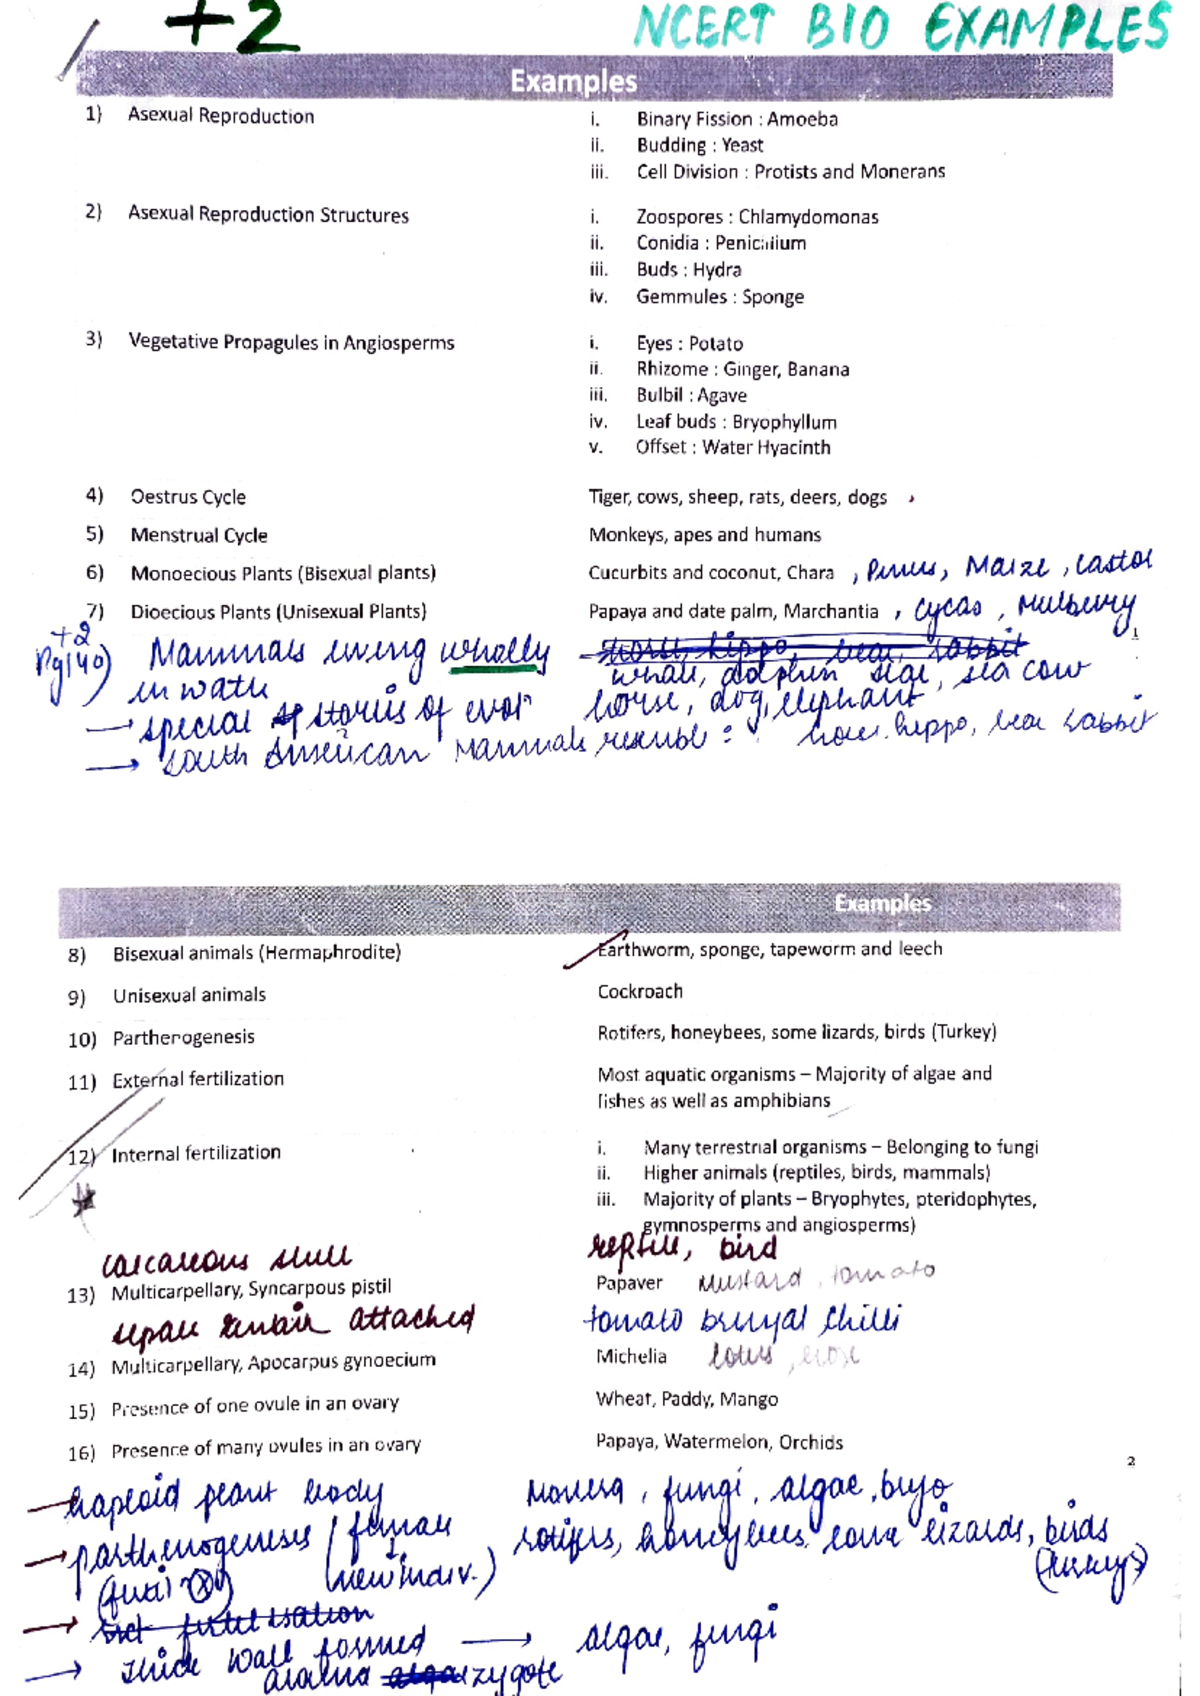 +2 NCERT BIO EXAMPLES
Examples
1) Asexual Reproduction i. Binary Fission : Amoeba
ii. Budding : Yeast
iii. Cell Division : Protists and Monerans
2) Asexual Reproduction Structures i. Zoospores : Chlamydomonas
ii. Conidia : Penicillium
iii. Buds : Hydra
iv. Gemmules : Sponge
3) Vegetative Propagules in Angiosperms i. Eyes : Potato
ii. Rhizome : Ginger, Banana
iii. Bulbil : Agave
iv. Leaf buds : Bryophyllum
v. Offset : Water Hyacinth
4) Oestrus Cycle Tiger, cows, sheep, rats, deers, dogs
5) Menstrual Cycle Monkeys, apes and humans
6) Monoecious Plants (Bisexual plants) Cucurbits and coconut, Chara , Pinus, Maize , castor
7) Dioecious Plants (Unisexual Plants) Papaya and date palm, Marchantia , cycas , mulberry
1
+2
Pg 140) Mammals living wholly horse, hippo, bear, rabbit
in water whale, dolphin seal, sea cow
→ special stories of evol horse, dog, elephant
→ South American Mammals resemble : horse, hippo, bear rabbit
Examples
8) Bisexual animals (Hermaphrodite) Earthworm, sponge, tapeworm and leech
9) Unisexual animals Cockroach
10) Parthenogenesis Rotifers, honeybees, some lizards, birds (Turkey)
11) External fertilization Most aquatic organisms – Majority of algae and
fishes as well as amphibians
12) Internal fertilization i. Many terrestrial organisms – Belonging to fungi
ii. Higher animals (reptiles, birds, mammals)
iii. Majority of plants – Bryophytes, pteridophytes,
gymnosperms and angiosperms)
calcareous shell reptile, bird
13) Multicarpellary, Syncarpous pistil Papaver Mustard , tomato
sepals remain attached tomato brinjal chilli
14) Multicarpellary, Apocarpus gynoecium Michelia lotus , rose
15) Presence of one ovule in an ovary Wheat, Paddy, Mango
16) Presence of many ovules in an ovary Papaya, Watermelon, Orchids
2
→ haploid plant body Monera , fungi , algae , bryo
→ parthenogenesis / female rotifers, honeybees, some lizards, birds
new indiv.) (turkey)
→ fertilisation
→ thick wall formed → algae, fungi
around zygote